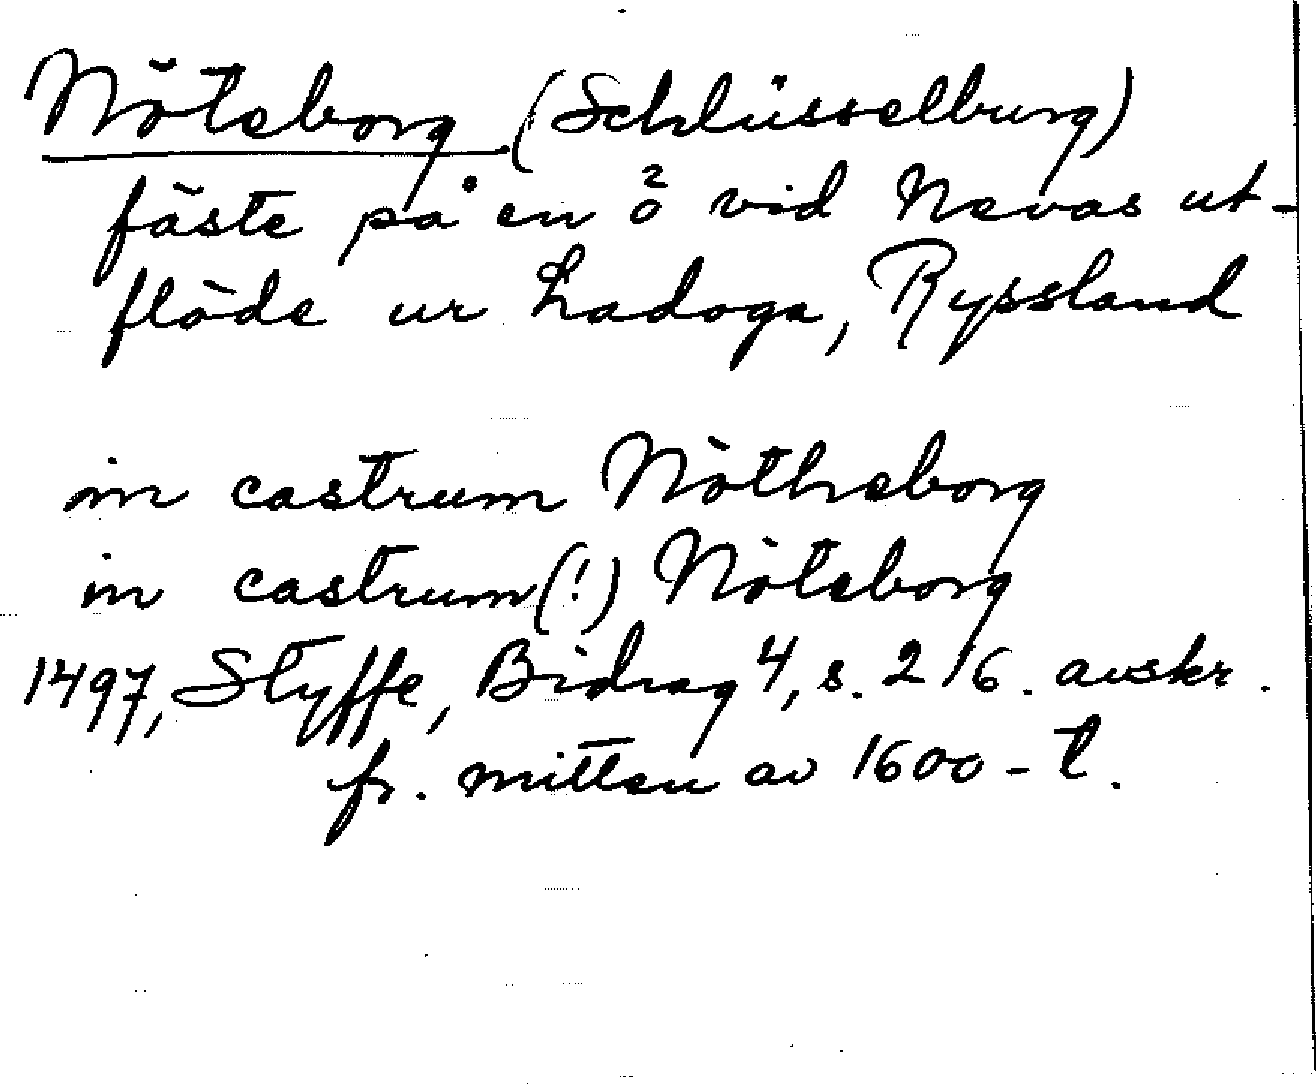 Nöteborg (Schlüsselburg)
fäste på en ö vid Nevas ut-
flöde ur Ladoga, Ryssland
in castrum Nötheborg
in castrum(!) Nöteborg
1497, Styffe, Bidrag 4, s. 216. avskr.
fr. mitten av 1600-t.